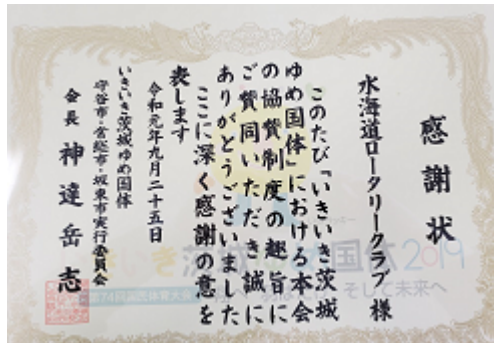 感謝状
水海道ロータリークラブ 様
このたび「いきいき茨城
ゆめ国体」における本会
の協賛制度の趣旨に
ご賛同いただき誠に
ありがとうございました
ここに深く感謝の意を
表します
令和元年九月二十五日
いきいき茨城ゆめ国体
守谷市・常総市・坂東市実行委員会
会長 神達岳志
いきいき茨城ゆめ国体2019
第74回国民体育大会
そして未来へ